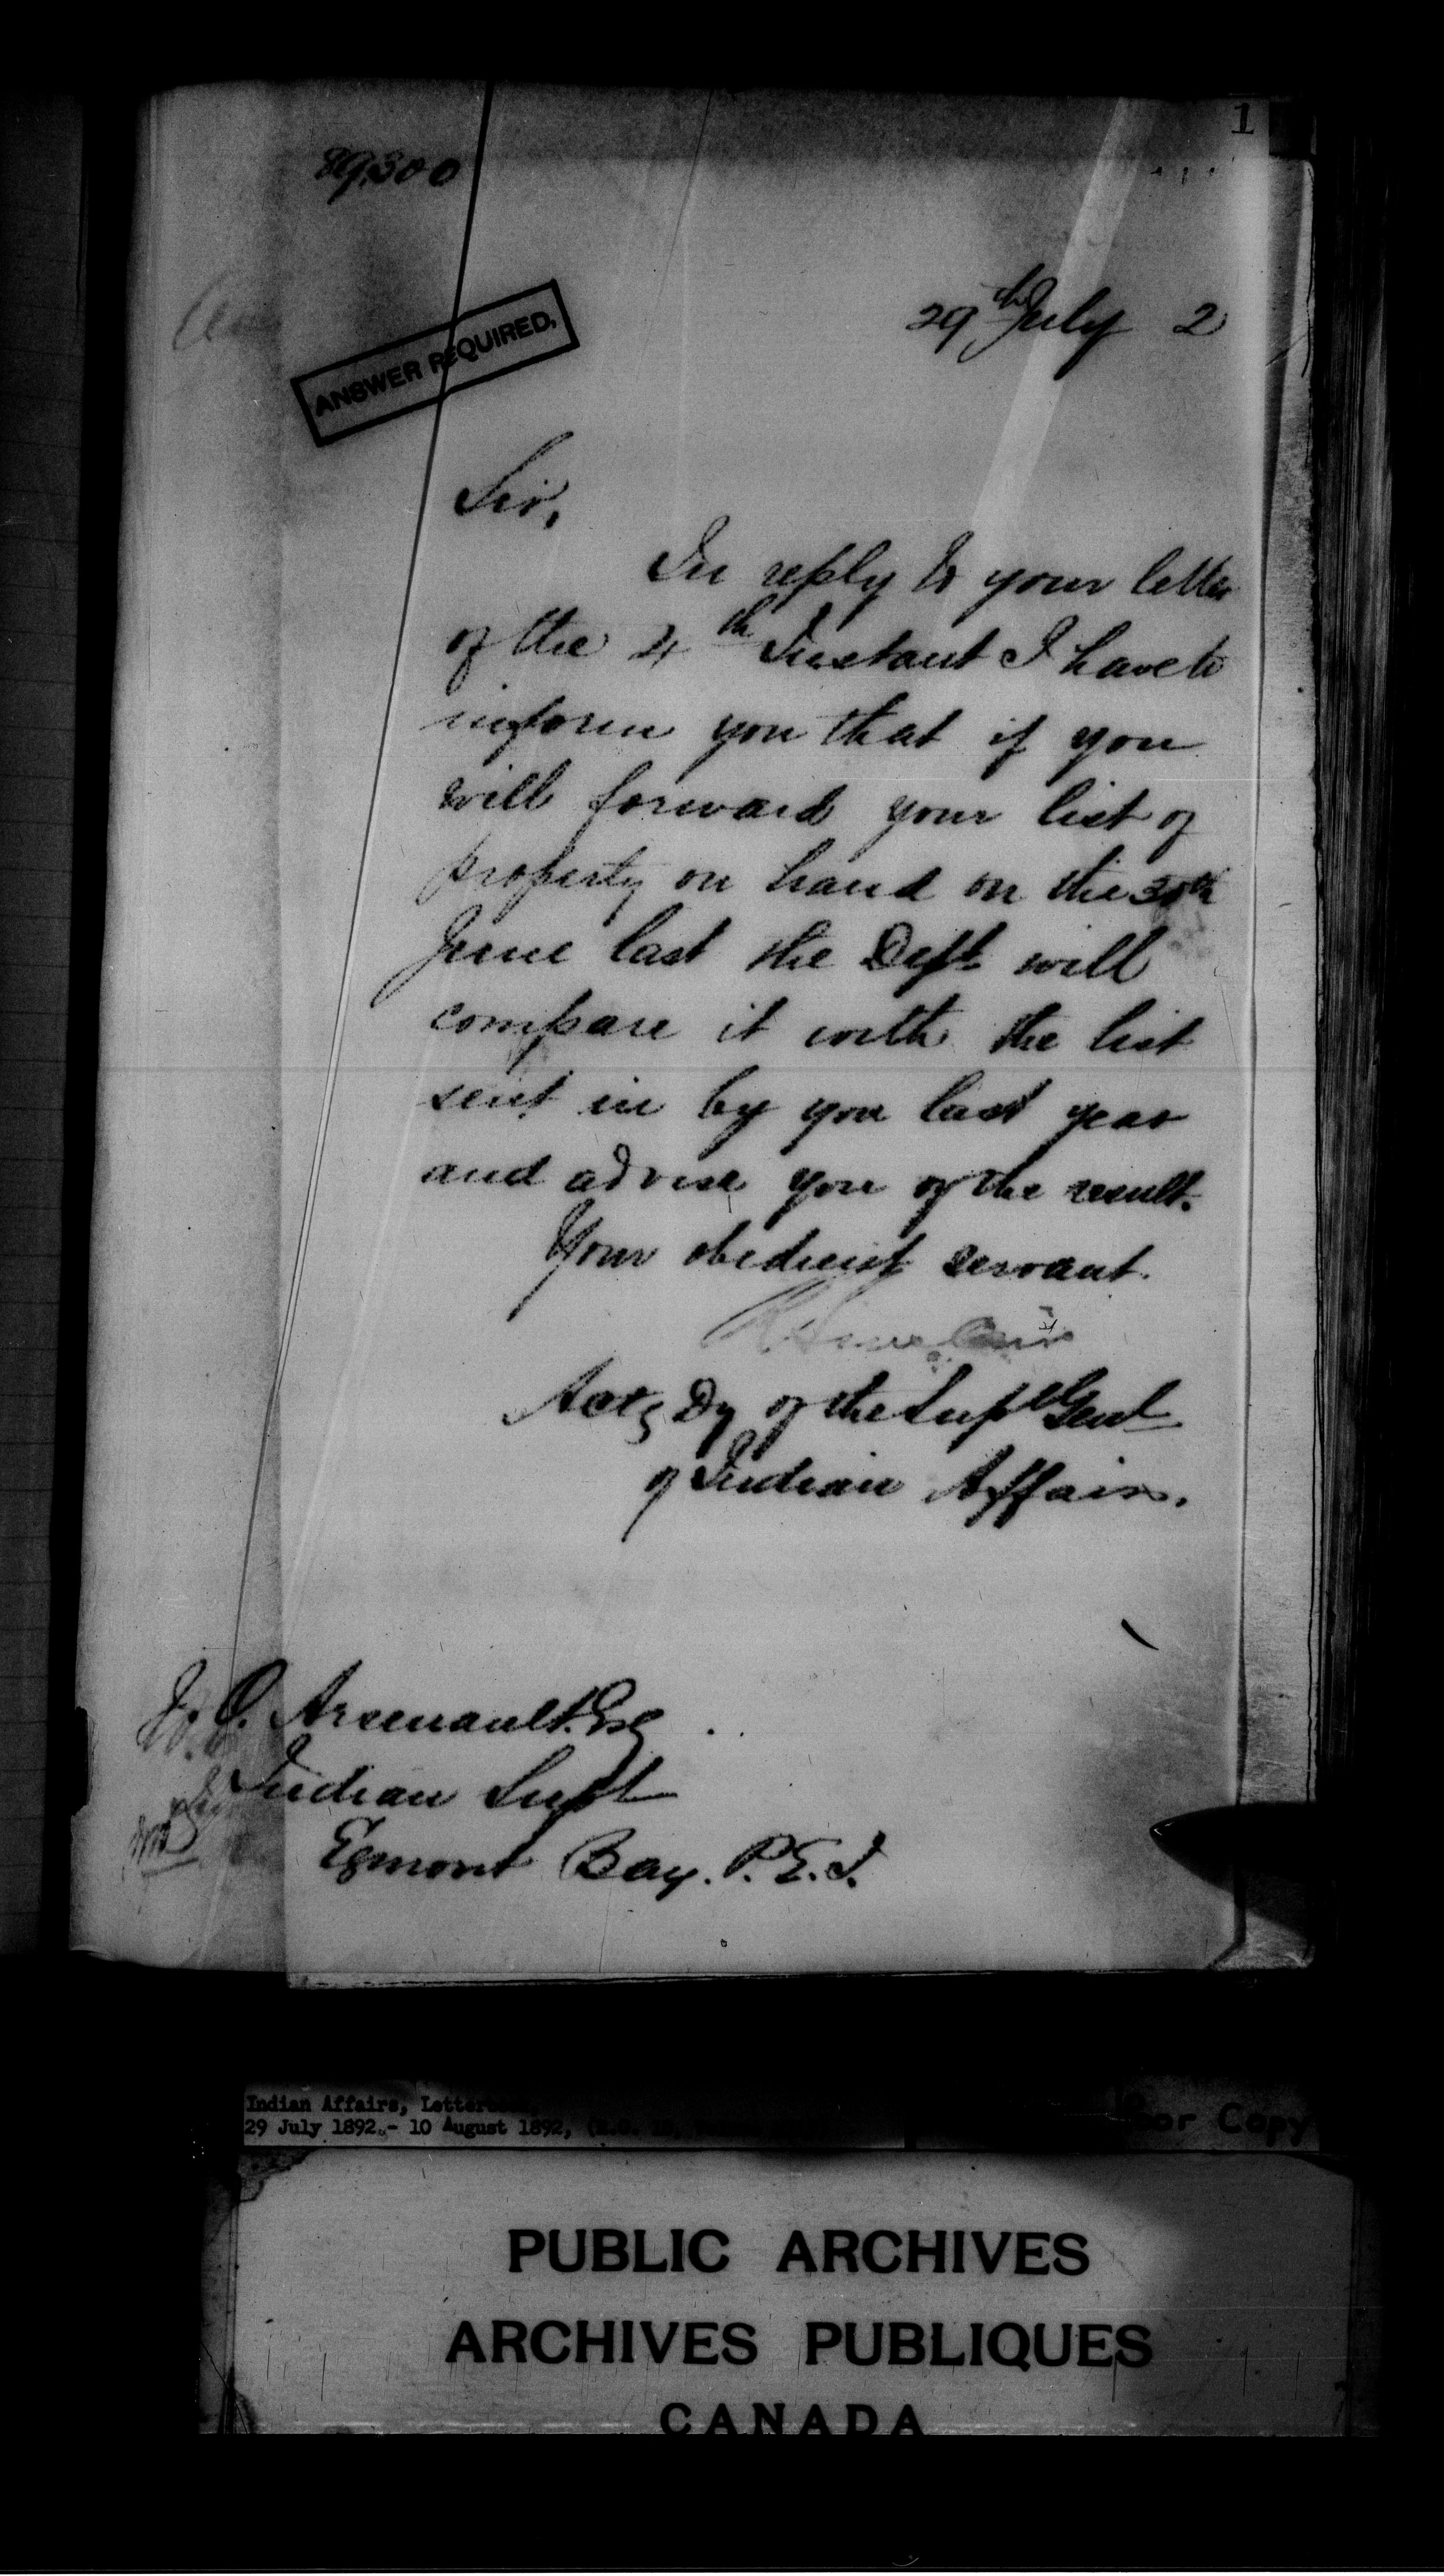 1
89,300
29th July 2
ANSWER REQUIRED,
Sir,
In reply to your letter
of the 4th Instant I have to
inform you that if you
will forward your list of
property on hand on the 30th
June last the Dept. will
compare it with the list
sent in by you last year
and advise you of the result.
Your obedient servant.
Actg Dy of the Supt Genl
of Indian Affairs.
J. O. Arsenault. Esq
Indian Supt
Egmont Bay. P.E.I.
Indian Affairs,
29 July 1892.- 10 August 1892,
Poor Copy
PUBLIC ARCHIVES
ARCHIVES PUBLIQUES
CANADA